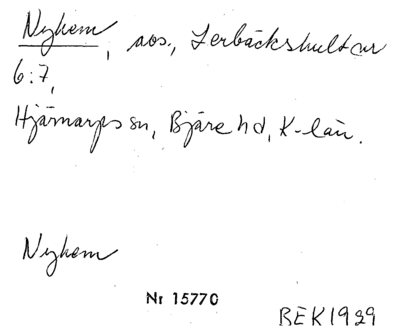 Nyhem, avs., Lerbäckshult nr
6:7,
Hjärnarps sn, Bjäre hd, K-län.
Nyhem
Nr 15770
BEK 1929